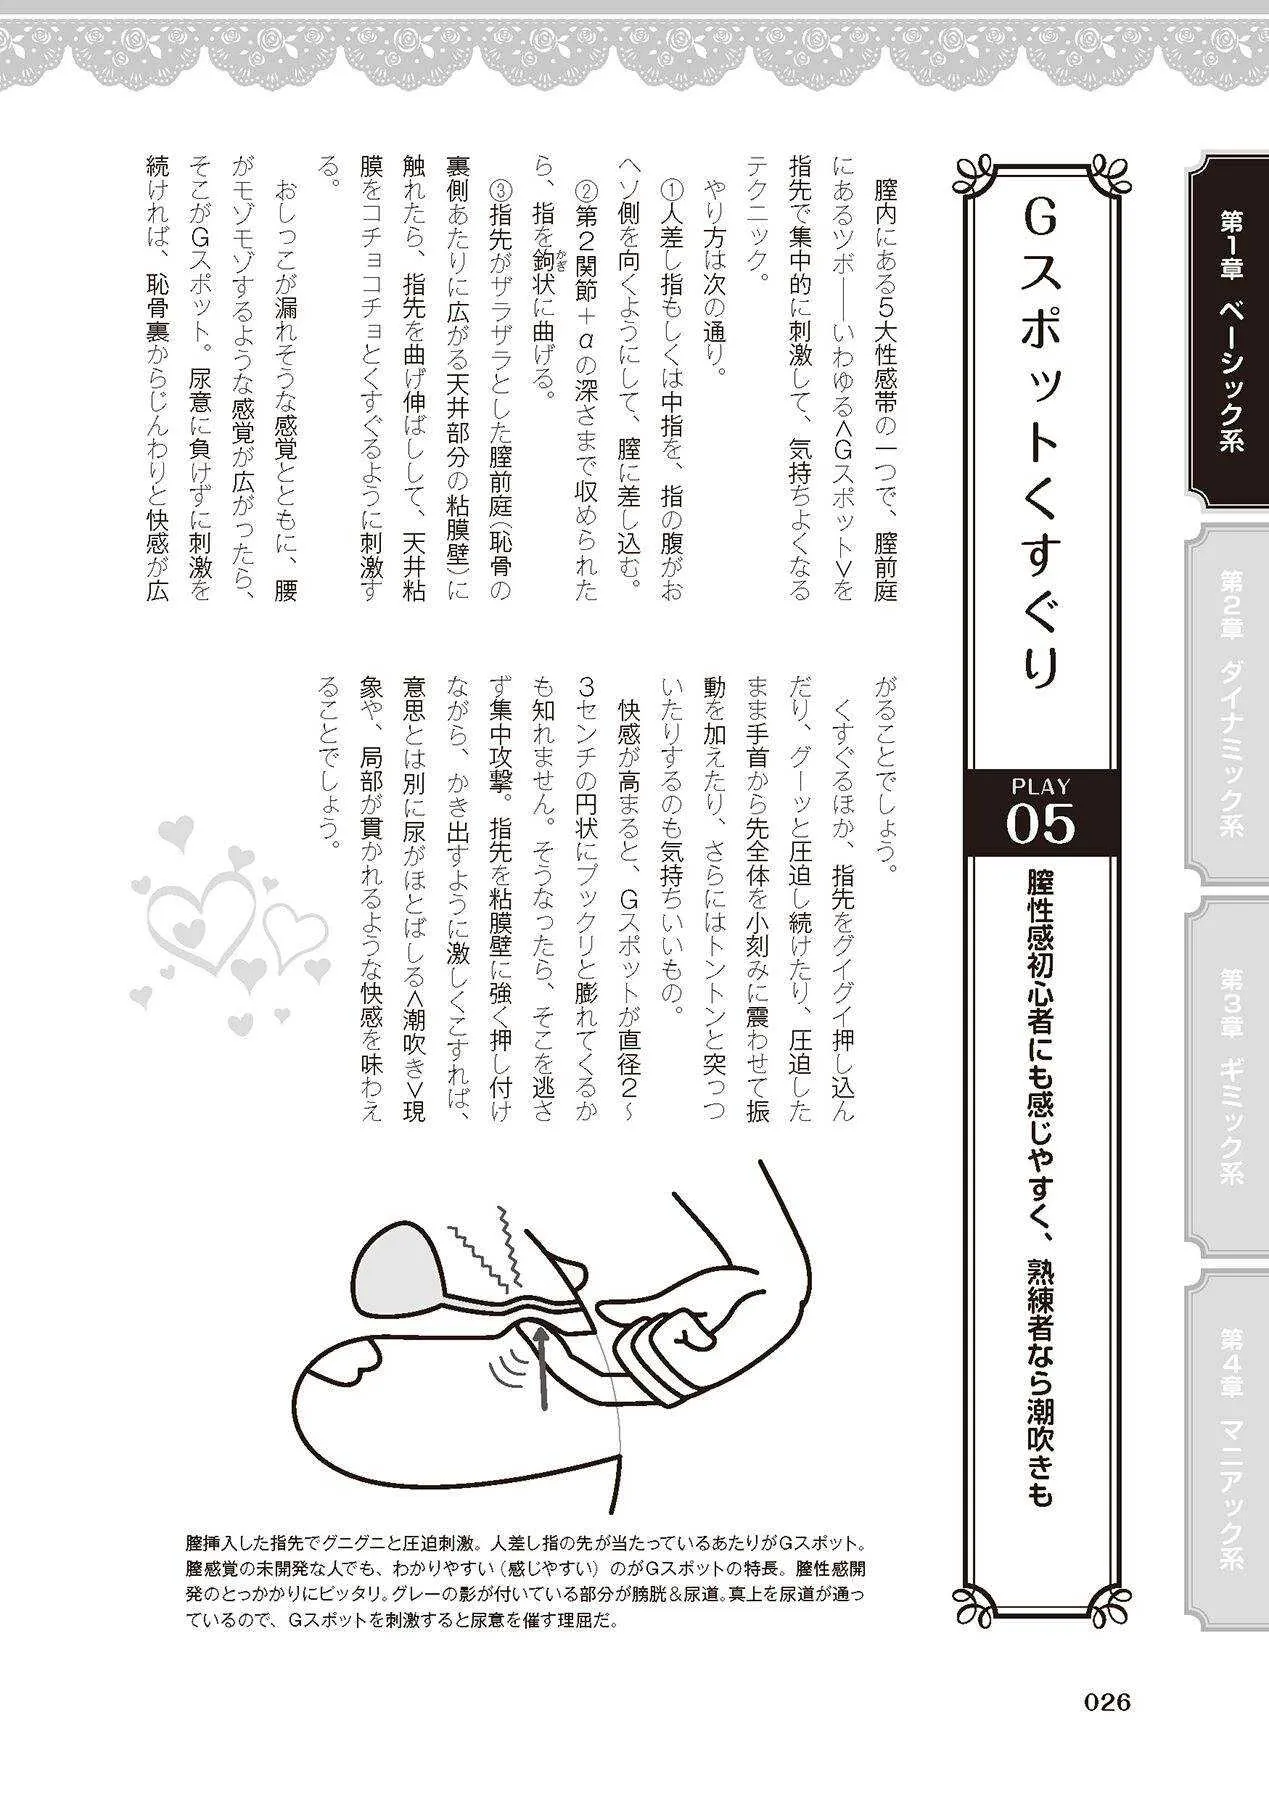 第1章 ベーシック系
第2章 ダイナミック系
第3章 ギミック系
第4章 マニアック系
Gスポットくすぐり
PLAY
05
膣性感初心者にも感じやすく、熟練者なら潮吹きも
膣内にある5大性感帯の一つで、膣前庭
にあるツボ――いわゆる<Gスポット>を
指先で集中的に刺激して、気持ちよくなる
テクニック。
やり方は次の通り。
①人差し指もしくは中指を、指の腹がお
ヘソ側を向くようにして、膣に差し込む。
②第2関節+αの深さまで収められた
ら、指を鉤状に曲げる。
かぎ
③指先がザラザラとした膣前庭(恥骨の
裏側あたりに広がる天井部分の粘膜壁)に
触れたら、指先を曲げ伸ばしして、天井粘
膜をコチョコチョとくすぐるように刺激す
る。
おしっこが漏れそうな感覚とともに、腰
がモゾモゾするような感覚が広がったら、
そこがGスポット。尿意に負けずに刺激を
続ければ、恥骨裏からじんわりと快感が広
がることでしょう。
くすぐるほか、指先をグイグイ押し込ん
だり、グーッと圧迫し続けたり、圧迫した
まま手首から先全体を小刻みに震わせて振
動を加えたり、さらにはトントンと突っつ
いたりするのも気持ちいいもの。
快感が高まると、Gスポットが直径2～
3センチの円状にプックリと膨れてくるか
も知れません。そうなったら、そこを逃さ
ず集中攻撃。指先を粘膜壁に強く押し付け
ながら、かき出すように激しくこすれば、
意思とは別に尿がほとばしる<潮吹き>現
象や、局部が貫かれるような快感を味わえ
ることでしょう。
膣挿入した指先でグニグニと圧迫刺激。人差し指の先が当たっているあたりがGスポット。
膣感覚の未開発な人でも、わかりやすい（感じやすい）のがGスポットの特長。膣性感開
発のとっかかりにピッタリ。グレーの影が付いている部分が膀胱&尿道。真上を尿道が通っ
ているので、Gスポットを刺激すると尿意を催す理屈だ。
026